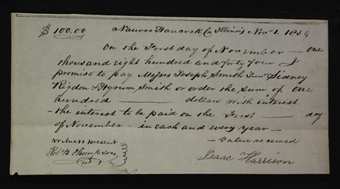 $100.00 Nauvoo Hancock Co. Illinois Nov 1. 1839
On the First day of November — one
thousand eight hundred and forty four I
promise to pay Messrs Joseph Smith Jun Sidney
Rigdon & Hyrum Smith or order the sum of one
hundred — dollars with interest
— the interest to be paid on the First — day
of November in each and every year —
Witness — value received
Robt B Thompson
Isaac Harrison